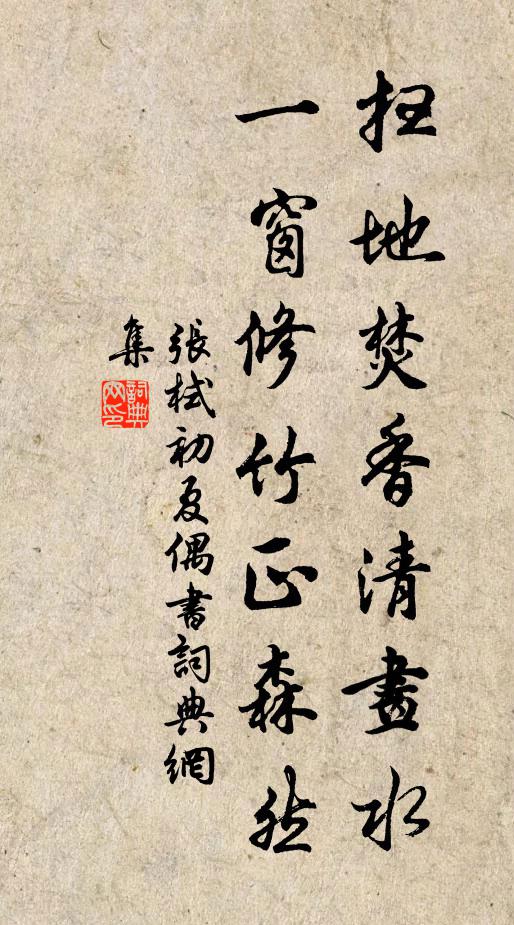 扫地焚香清晝永
一窗修竹正森然
張栻初夏偶書詞典網
集
詞典
网印